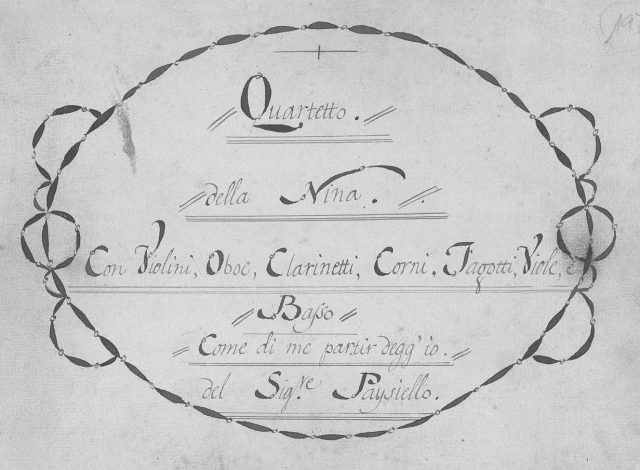 Quartetto.
della Nina.
Con Violini, Oboe, Clarinetti, Corni, Fagotti, Viole, e
Basso
Come di me partir degg' io.
del Sig.re Paysiello.